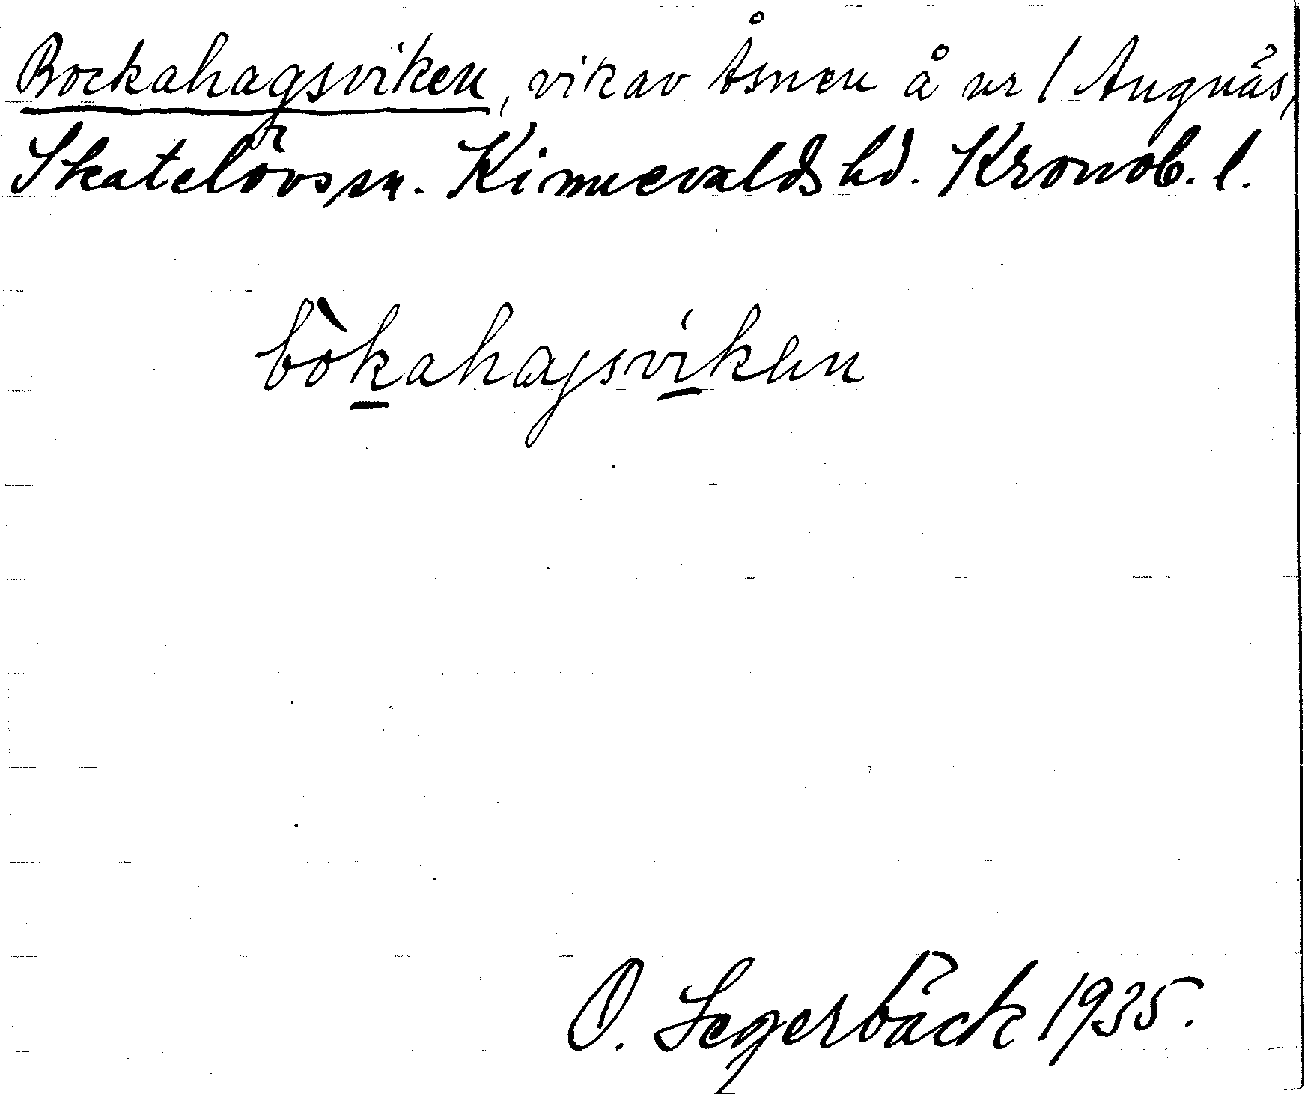 Bockahagsviken, vik av Åsnen å nr 1 Angnäs,
Skatelövs sn. Kinnevalds hd. Kronob. l.
bòkahagsvíkan
O. Segerbäck 1935.